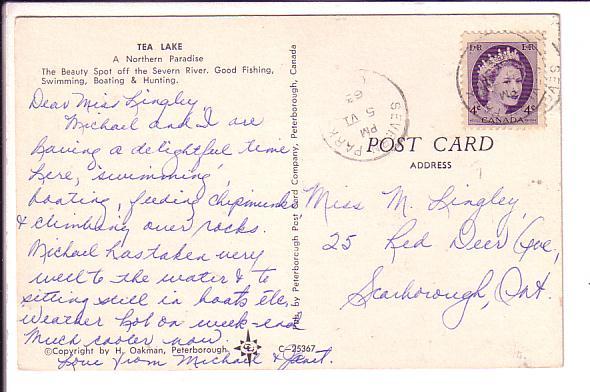 TEA LAKE
A Northern Paradise
The Beauty Spot off the Severn River. Good Fishing,
Swimming, Boating & Hunting.
Dear Miss Lingley,
Michael and I are
having a delightful time
here, swimming,
boating, feeding chipmunks
& climbing over rocks.
Michael has taken very
well to the water & to
sitting still in boats etc.
Weather hot on week-end
Much cooler now.
Love from Michael & Janet.
©Copyright by H. Oakman, Peterborough.
C-25367
Pub. by Peterborough Post Card Company, Peterborough, Canada
SEVERN
PARK
PM
5 VI
63
EIIR EIIR
4c 4c
CANADA
POST CARD
ADDRESS
Miss M. Lingley,
25 Red Deer Ave,
Scarborough, Ont.